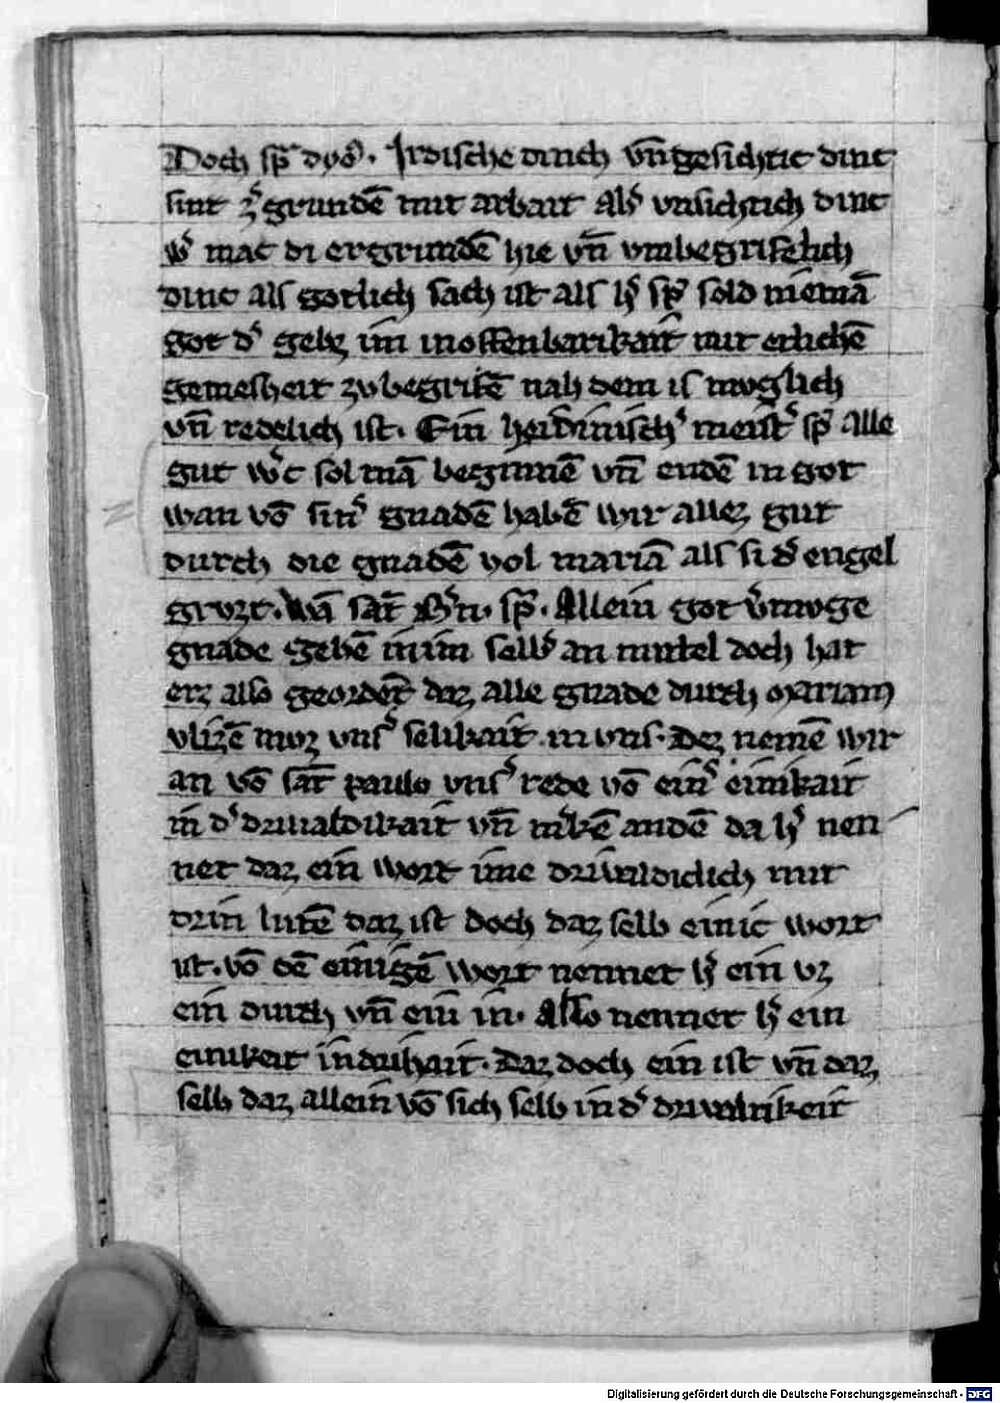 Doch sp̄ dyo᷒. Irdische dinch vn̄gesichtic dinc
sint zͤ grundē mit arbait als᷒ vnsichtich dinc
w᷒ mac di ergrundē hie vn̄ vmbegrifelich
dinc als gotlich sach ist als h᷒ sp̄ sold niemā
got d᷒ gebz im inoffenbarikait mit erlichē
gemesheit zvbegrifē nah dem is muglich
vn̄ redelich ist. Ein heidinisch᷒ meist᷒ sp̄ alle
gut w᷒c sol mā beginnē vn̄ endē in got
wan vō sin᷒ gnadē habē wir allez gut
durch die gnadē vol mariā als si d᷒ engel
grvzt. Wā sāt B᷒n. sp̄. Allein got v᷒muge
gnade gebē inim selb᷒ an mittel doch hat
erz also geordēt daz alle gnade durch mariam
vlizē muz vns᷒ selikait in vns. Dez nemē wir
an vō sāt paulo vns᷒ rede vō ein᷒ einikait
in d᷒ driualdikait vn̄ m᷒kē andē da h᷒ nen
net daz ein wort ime driualdiclich mit
drin lutē daz ist doch daz selb einic wort
ist. vō dē einigē wort nennet h᷒ ein vz
ein durch vn̄ ein in. Also nennet h᷒ ein
einikeit in drihait. Daz doch ein ist vn̄ daz
selb daz allein vō sich selb in d᷒ driualtikeit
Digitalisierung gefördert durch die Deutsche Forschungsgemeinschaft - DFG